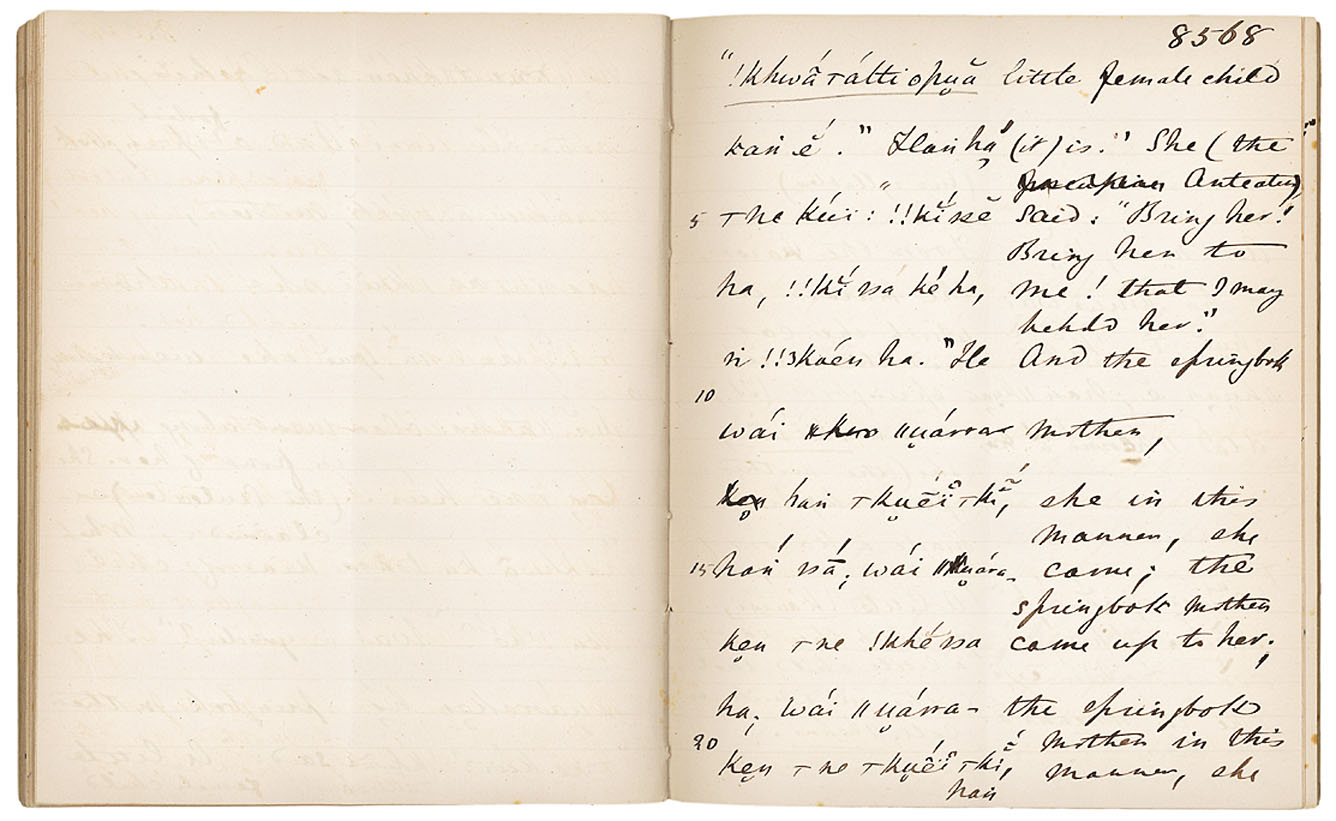 8568
"!khwā́ rátti opu̥ă little female child
kań ĕ́." Haṅ hắ (it) is." She (the
Anteater)
5 ⊤ne kúï: "!!kĭ́ sse said: "Bring her!
Bring her to
ha, !!kĭ́ ssá ké ha, me! that I may
behold her."
ń !!ʒkoéṅ ha." He And the springbok
10
wái ǁu̥árra- mother,
haṅ ⊤ku̥ḗï ⊤kĭ̃́, she in this
manner, she
15 haṅ́ ssā́; wái ǁu̥árra- came; the
springbok mother
ke̥n ⊤ne !khé ssa came up to her;
ha; wái ǁu̥árra- the springbok
20 mother in this
ke̥n ⊤ne ⊤ku̥ḗï ⊤kĭ̃́, manner, she
haṅ